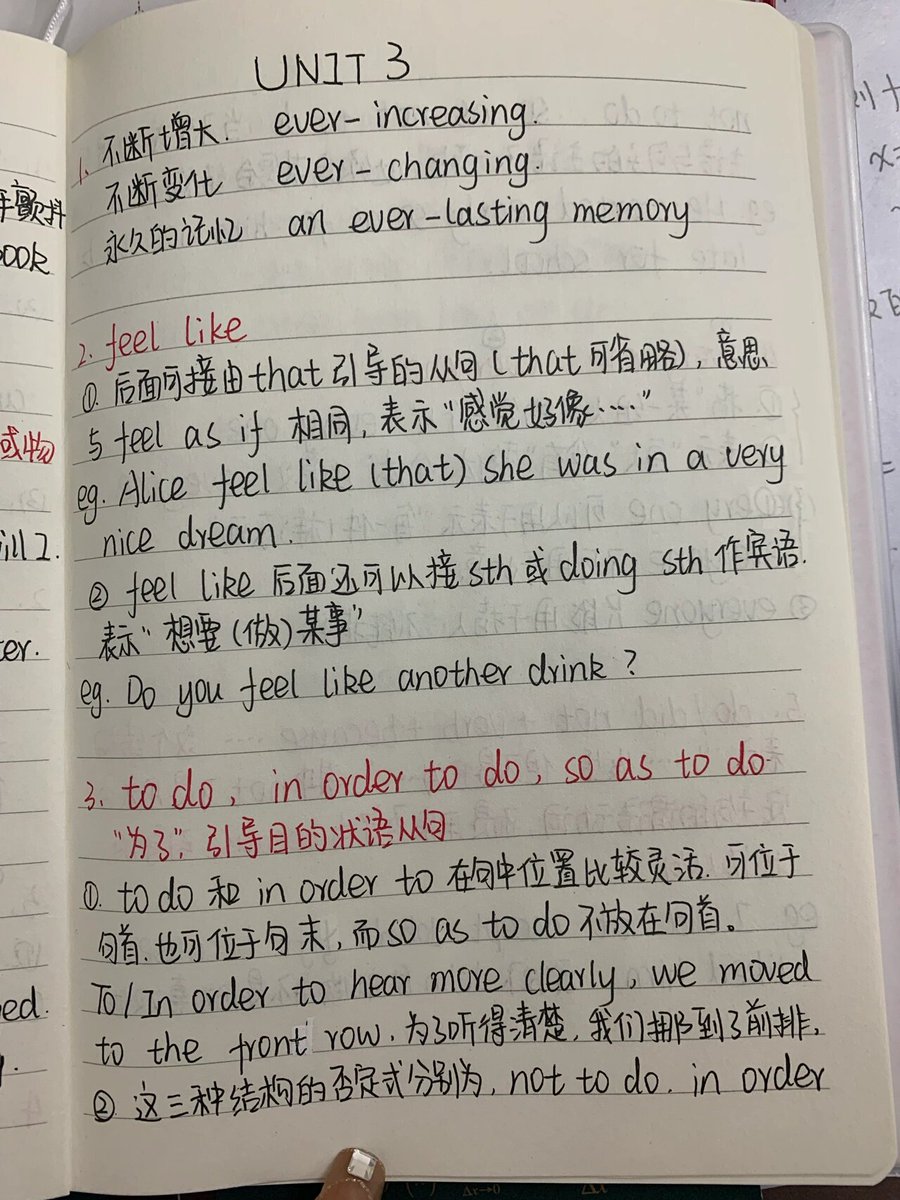 UNIT 3
1. 不断增大. ever-increasing.
不断变化 ever-changing.
永久的记忆 an ever-lasting memory
2. feel like
①. 后面可接由that引导的从句(that可省略), 意思
与feel as if 相同, 表示"感觉好像····"
eg. Alice feel like (that) she was in a very
nice dream.
② feel like 后面还可以接sth或doing sth 作宾语.
表示"想要(做)某事"
eg. Do you feel like another drink?
3. to do, in order to do, so as to do.
"为了", 引导目的状语从句
①. to do 和 in order to 在句中位置比较灵活. 可位于
句首.也可位于句末,而so as to do不放在句首。
To/In order to hear more clearly, we moved
to the front row. 为了听得清楚, 我们挪到了前排.
② 这三种结构的否定式分别为, not to do. in order
手颤抖
ook
或物
ill 2.
ter.
ed.